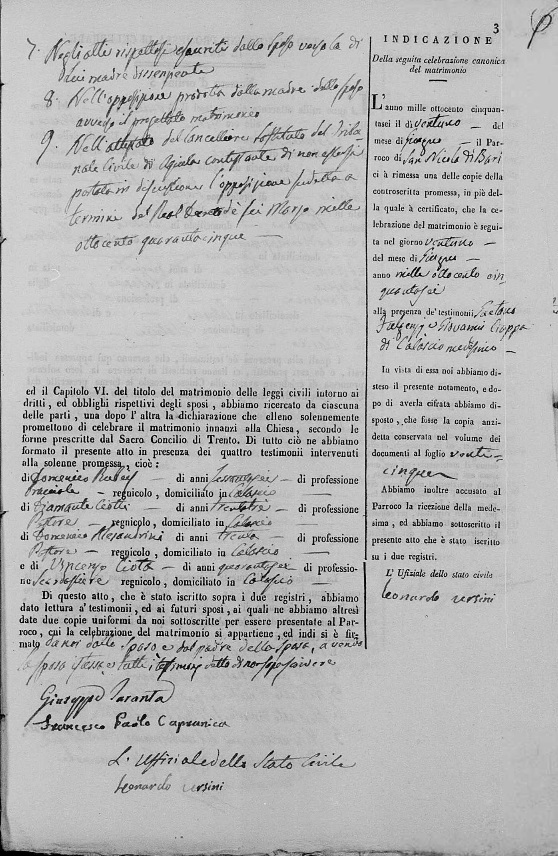 3
7. Negli atti rispettosi eseguiti dallo sposo verso la di
lui madre dissenziente
8. Nell'opposizione prodotta dalla madre dello sposo
avverso il progettato matrimonio
9. Nell'attestato del Cancelliere sostituto del Tribu
nale Civile di Aquila contestante di non essersi
portata in discussione l'opposizione sudetta a
termine del Real Decreto de' sei Marzo mille
ottocento quarantacinque —
ed il Capitolo VI. del titolo del matrimonio delle leggi civili intorno ai
dritti, ed obblighi rispettivi degli sposi, abbiamo ricercato da ciascuna
delle parti, una dopo l'altra la dichiarazione che elleno solennemente
promettono di celebrare il matrimonio innanzi alla Chiesa, secondo le
forme prescritte dal Sacro Concilio di Trento. Di tutto ciò ne abbiamo
formato il presente atto in presenza dei quattro testimoni intervenuti
alla solenne promessa, cioè:
di Domenico — di anni sessantasei — di professione
Bracciale — regnicolo, domiciliato in Calascio —
di Diamante Ciotti — di anni trentatre — di professione
Pastore — regnicolo, domiciliato in Calascio —
di Domenico Alesandrini di anni trenta — di professione
Pastore — regnicolo, domiciliato in Calascio —
e di Vincenzo Ciotti — di anni quarantasei — di professio-
ne Scardassiere regnicolo, domiciliato in Calascio —
Di questo atto, che è stato iscritto sopra i due registri, abbiamo
dato lettura a' testimonii, ed ai futuri sposi, ai quali ne abbiamo altresì
date due copie uniformi da noi sottoscritte per essere presentate al Par-
roco, cui la celebrazione del matrimonio si appartiene, ed indi si è fir-
mato da noi dallo Sposo e dal padre della Sposa, avendo
la sposa stessa e tutti i testimonj detto di non sapere scrivere
Giuseppe Taranta
Francesco Paolo Capranica
L'Uffiziale dello Stato Civile
Leonardo Ursini
INDICAZIONE
Della seguita celebrazione canonica
del matrimonio
L'anno mille ottocento cinquan-
tasei il dì ventuno — del
mese di Giugno — il Par-
roco di San Nicola di Bari
ci à rimessa una delle copie della
controscritta promessa, in piè del-
la quale à certificato, che la ce-
lebrazione del matrimonio è segui-
ta nel giorno ventuno —
del mese di Giugno —
anno mille ottocento cin
quantasei
alla presenza de' testimoni Gaetano
e Giovanni
di Calascio medesimo —
In vista di essa noi abbiamo di-
steso il presente notamento, e do-
po di averla cifrata abbiamo di-
sposto, che fosse la copia anzi-
detta conservata nel volume dei
documenti al foglio venti-
cinque
Abbiamo inoltre accusato al
Parroco la ricezione della mede-
sima, ed abbiamo sottoscritto il
presente atto che è stato iscritto
su i due registri.
L'Ufiziale dello stato civile
Leonardo Ursini